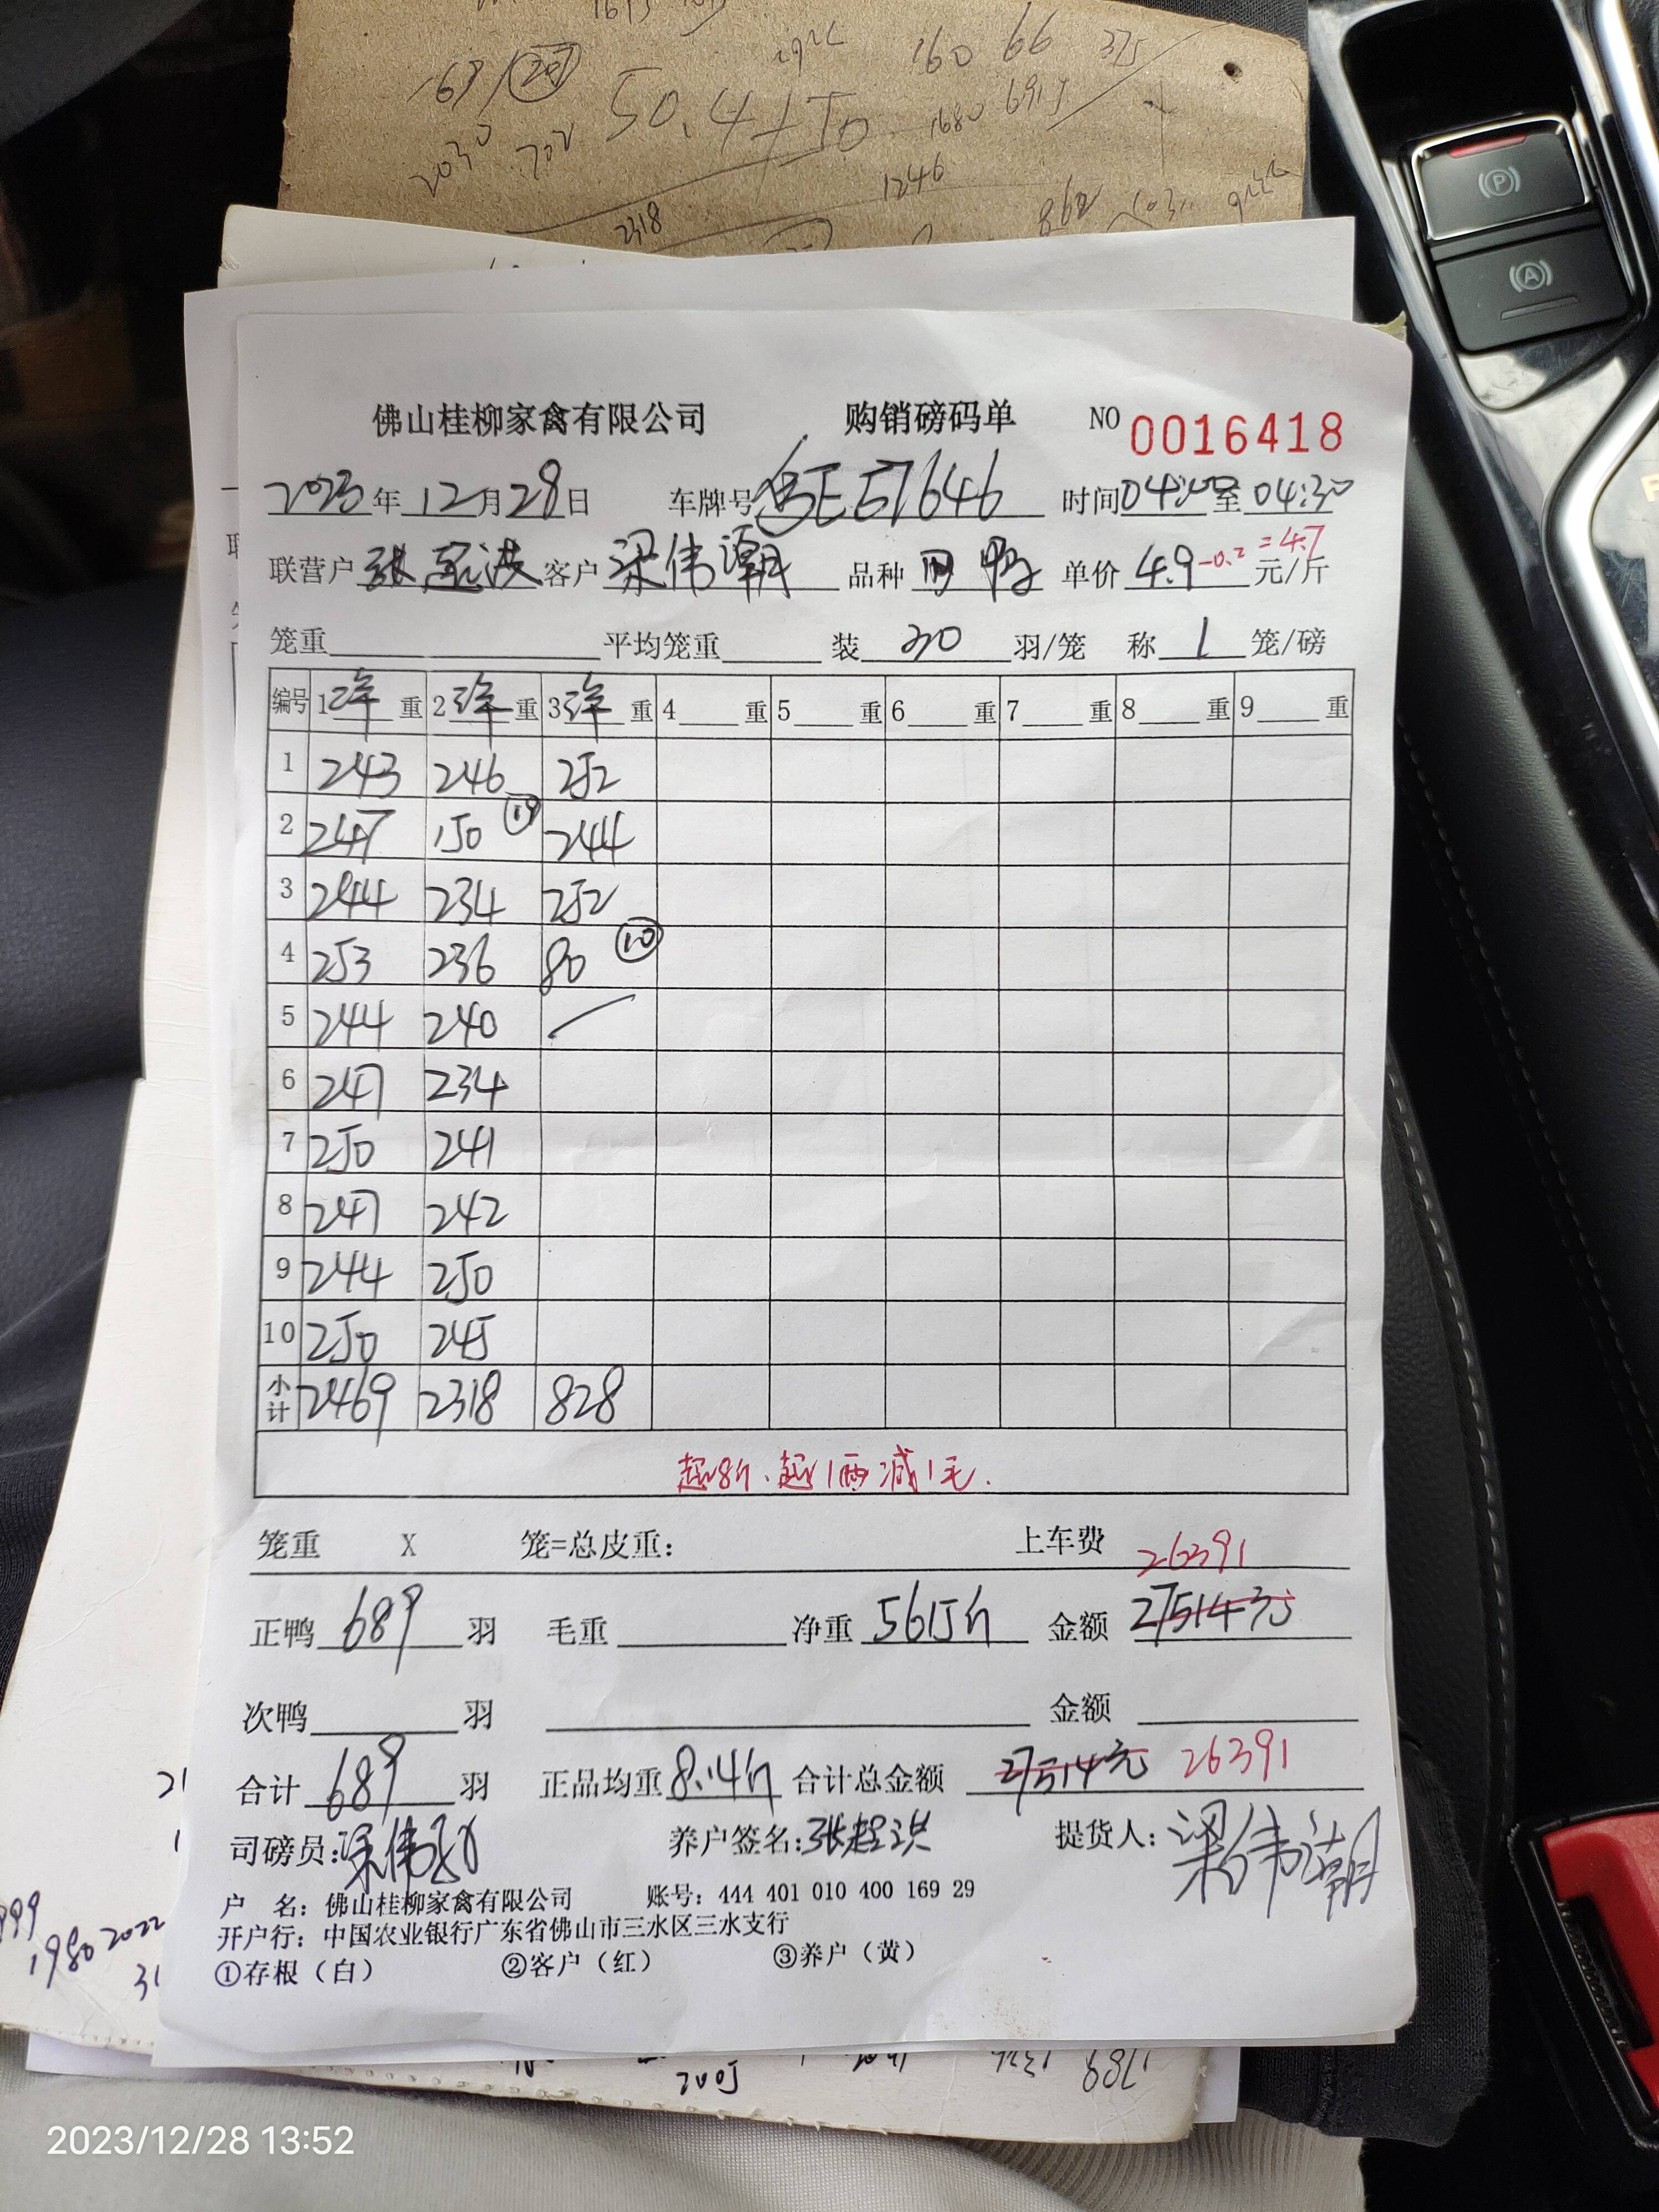 1680 6915
50.4
1246
2318
862
佛山桂柳家禽有限公司 购销磅码单 NO 0016418
2023年12月28日 车牌号粤E57646 时间04:00至04:30
联营户 张 洪 客户 梁伟潮 品种 鸭 单价 4.9-0.2=4.7 元/斤
笼重 平均笼重 装 20 羽/笼 称 1 笼/磅
编号 1 净 重 2 净 重 3 净 重 4 重 5 重 6 重 7 重 8 重 9 重
1 243 246 252
2 247 150 244
3 244 234 252
4 253 236 80 ⑩
5 244 240
6 247 234
7 250 241
8 247 242
9 244 250
10 250 245
小计 2469 2318 828
超8斤、超1两减1毛.
笼重 X 笼=总皮重: 上车费
26391
正鸭 689 羽 毛重 净重 5615斤 金额 27514元
次鸭 羽 金额
合计 689 羽 正品均重 8.14斤 合计总金额 27514元 26391
司磅员: 养户签名: 提货人: 梁伟潮
户 名: 佛山桂柳家禽有限公司 账号: 444 401 010 400 169 29
开户行: 中国农业银行广东省佛山市三水区三水支行
①存根（白） ②客户（红） ③养户（黄）
1980 2022
2005
2023/12/28 13:52